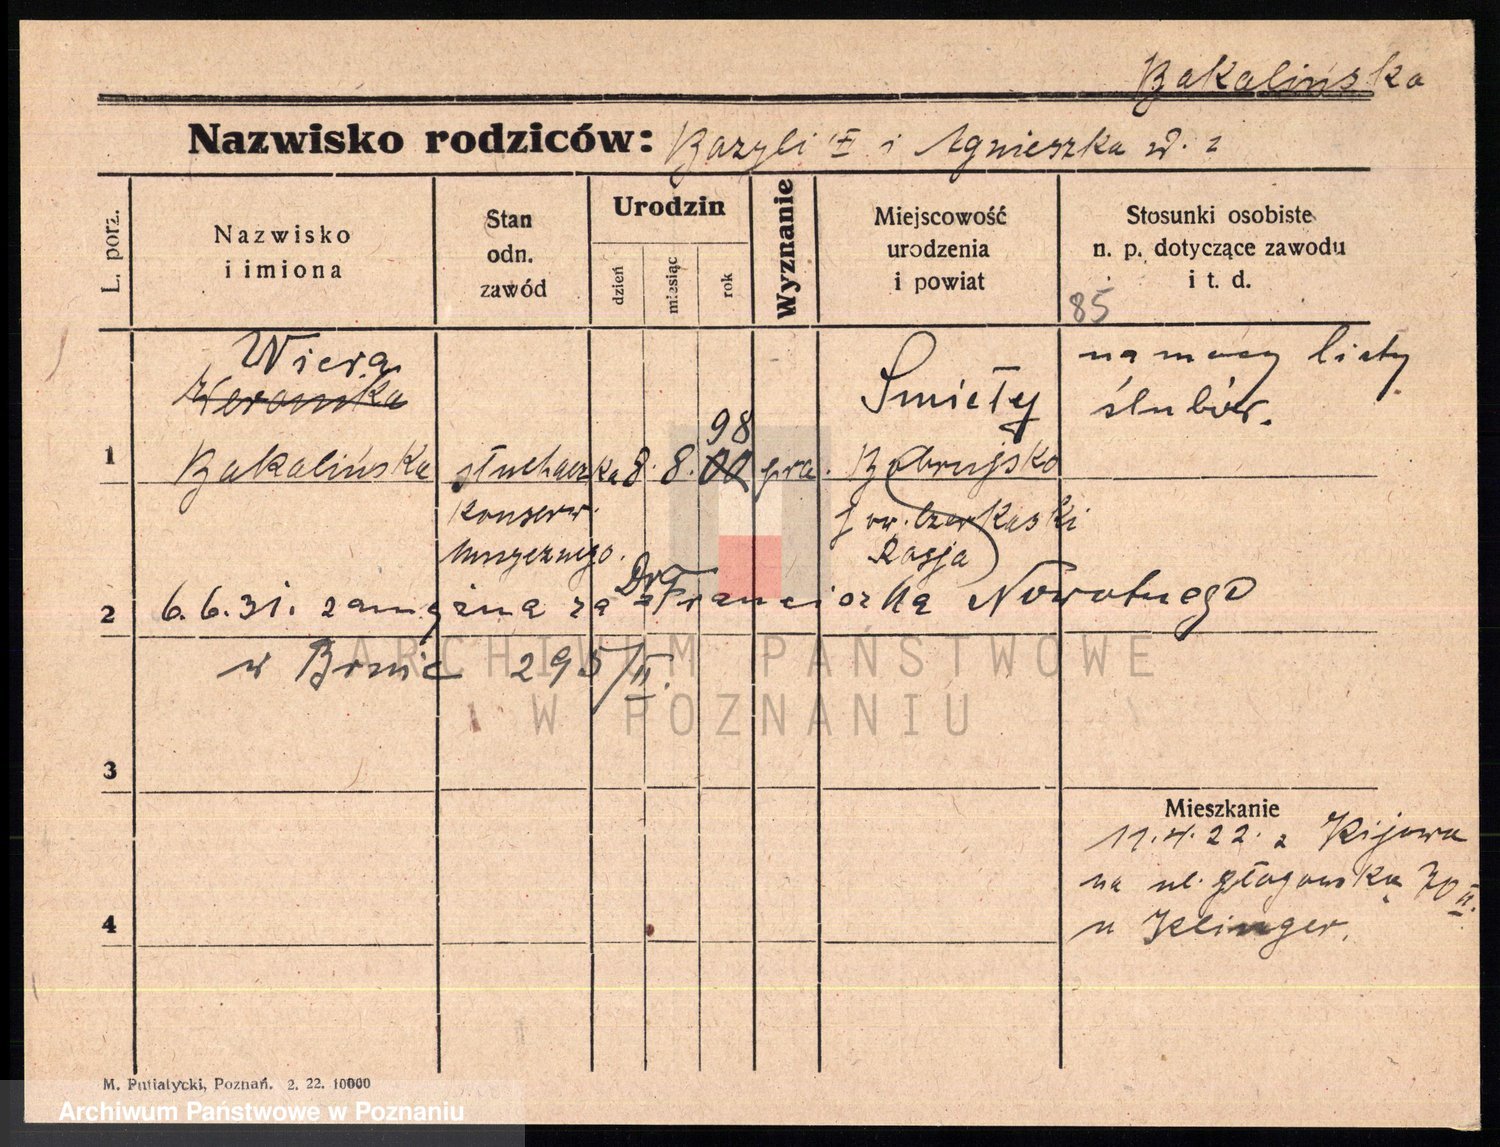 Bakalińska
Nazwisko rodziców: Bazyli i Agnieszka
L. porz.
Nazwisko
i imiona
Stan
odn.
zawód
Urodzin
dzień
miesiąc
rok
Wyznanie
Miejscowość
urodzenia
i powiat
Stosunki osobiste
n. p. dotyczące zawodu
i t. d.
85
1
Wiera
Weronika
Bakalińska
słuchaczka
konserw.
muzycznego.
8. 8. 00
98
pra.
Smieły
Bobrujsko
pow. Czerkaski
Rosja
na mocy listy
ślubów.
2
6.6.31. zamężna za Dra Franciszka Nowotnego
w Brnie 295/II.
3
4
Mieszkanie
11.4.22. z Kijowa
na ul. Głogowską 70 II.
u Klinger.
M. Putiatycki, Poznań. 2. 22. 10000
ARCHIWUM PAŃSTWOWE
W POZNANIU
Archiwum Państwowe w Poznaniu